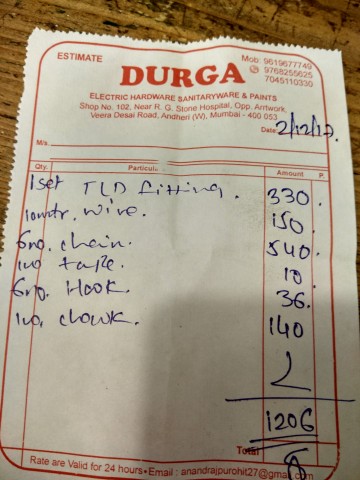 ESTIMATE
Mob: 9619677749
9768255625
7045110330
DURGA
ELECTRIC HARDWARE SANITARYWARE & PAINTS
Shop No. 102, Near R. G. Stone Hospital, Opp. Arrtwork,
Veera Desai Road, Andheri (W), Mumbai - 400 053
Date: 2/12/17.
M/s.
Qty. Particula Amount P.
1 set TLD fitting. 330.
10mtr. wire. 150.
6no. chain. 540.
1no tape. 10.
6no. Hook. 36.
1no. chowk. 140
1206
Total
Rate are Valid for 24 hours • Email : anandrajpurohit27@gmail.com